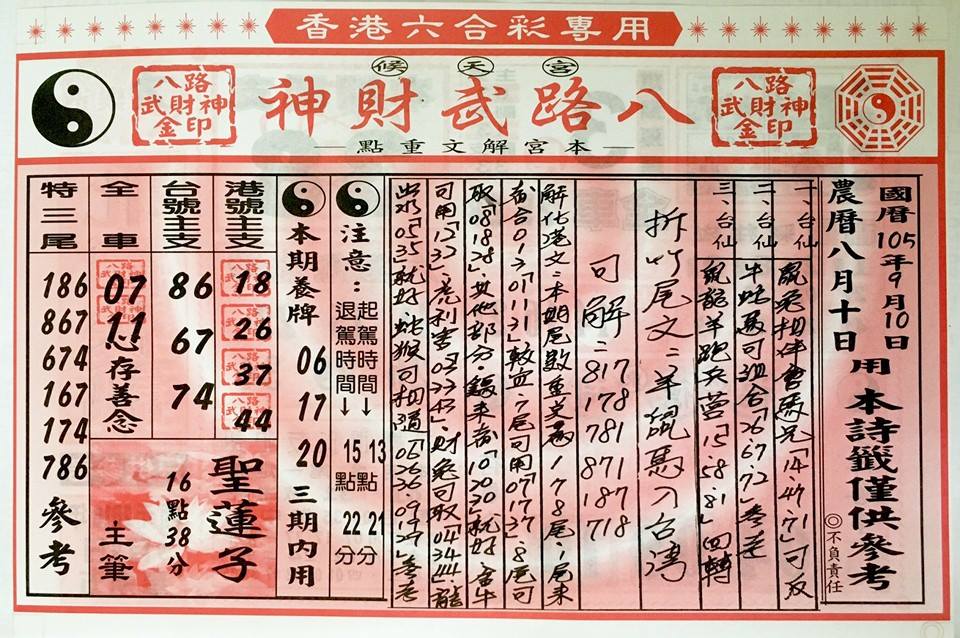 香港六合彩專用
候天宮
八路武財神
本宮解文重點
八路武財神金印
八路武財神金印
國曆105年9月10日
農曆八月十日
用本詩籤僅供參考
◎不負責任
一、台仙 鼠兔相伴會馬兄「14.47.71」可取
二、台仙 牛蛇馬可組合「26.67.72」參
三、台仙 鼠龍羊跑兵營「15.58.81」四轉
拆竹尾文:羊鼠馬入台灣
可解:817 178 781 871 187 718
解化港文:本期尾數重点為1.7.8尾.1尾來
合01.3「01.11.31」較.7尾可用「07.17.37」.8尾可
取「08.18.28」.其他部分.來「10.20.30」就好.牛
可用「13.33」.虎利害「03.33.43」.財兔可取「04.34.44」.龍
「05.35」就好.蛇猴可相隨「06.26.36.09.19.29」參考
注意:
起駕時間↓13點21分
退駕時間↓15點22分
本期養牌
06
17
20
三期內用
港號主支
18
26
37
44
台號主支
86
67
74
全車
07
11
心存善念
聖蓮子
16點38分
主筆
特三尾
186
867
674
167
174
786
參考